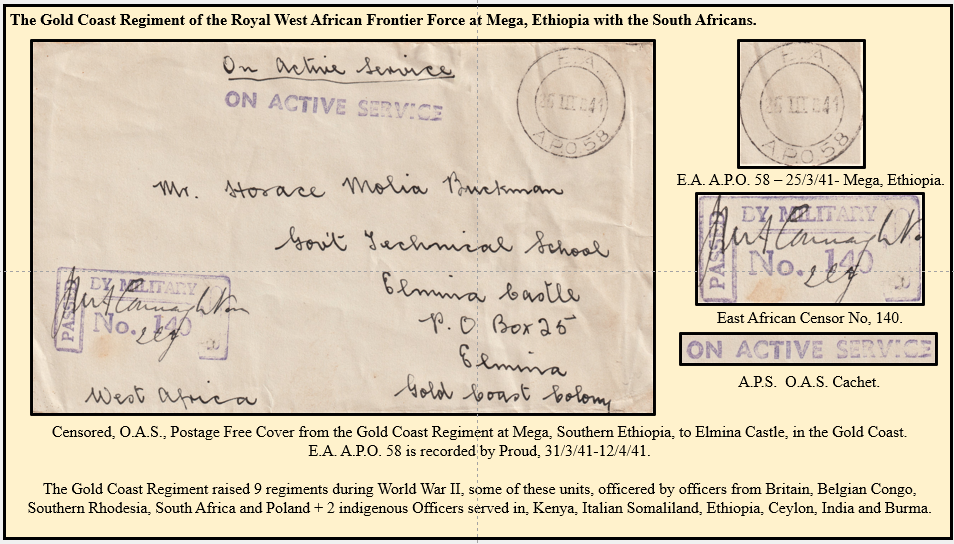 The Gold Coast Regiment of the Royal West African Frontier Force at Mega, Ethiopia with the South Africans.
On Active Service
ON ACTIVE SERVICE
E.A.
A.P.O. 58
Mr. Horace Molia Buckman
Gov't Technical School
Elmina Castle
P.O Box 25
Elmina
Gold Coast Colony
West Africa
PASSED
BY MILITARY
No. 140
E.A.
A.P.O. 58
E.A. A.P.O. 58 – 25/3/41- Mega, Ethiopia.
PASSED
BY MILITARY
No. 140
East African Censor No, 140.
ON ACTIVE SERVICE
A.P.S. O.A.S. Cachet.
Censored, O.A.S., Postage Free Cover from the Gold Coast Regiment at Mega, Southern Ethiopia, to Elmina Castle, in the Gold Coast.
E.A. A.P.O. 58 is recorded by Proud, 31/3/41-12/4/41.
The Gold Coast Regiment raised 9 regiments during World War II, some of these units, officered by officers from Britain, Belgian Congo,
Southern Rhodesia, South Africa and Poland + 2 indigenous Officers served in, Kenya, Italian Somaliland, Ethiopia, Ceylon, India and Burma.